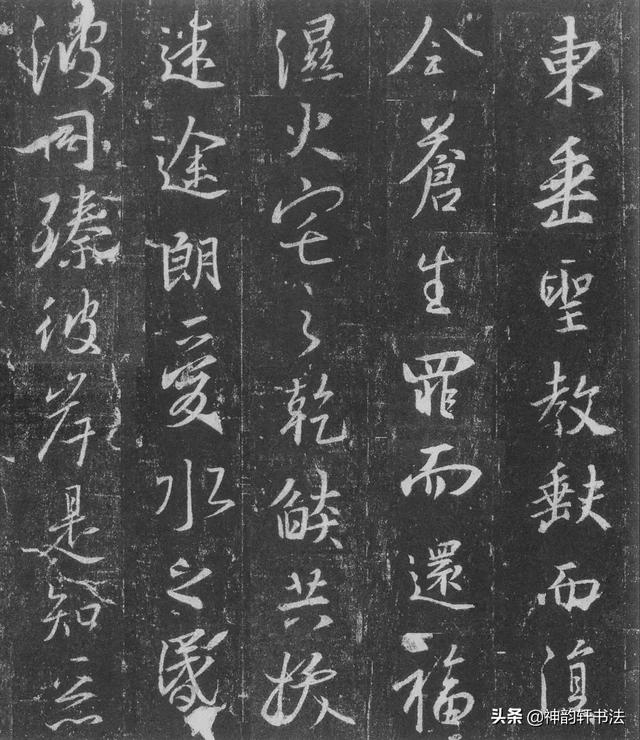 東垂聖教缺而復
全蒼生罪而還福
濕火宅之乾燄共拔
迷途朗愛水之昏
波同臻彼岸是知惡
头条 @神韵轩书法